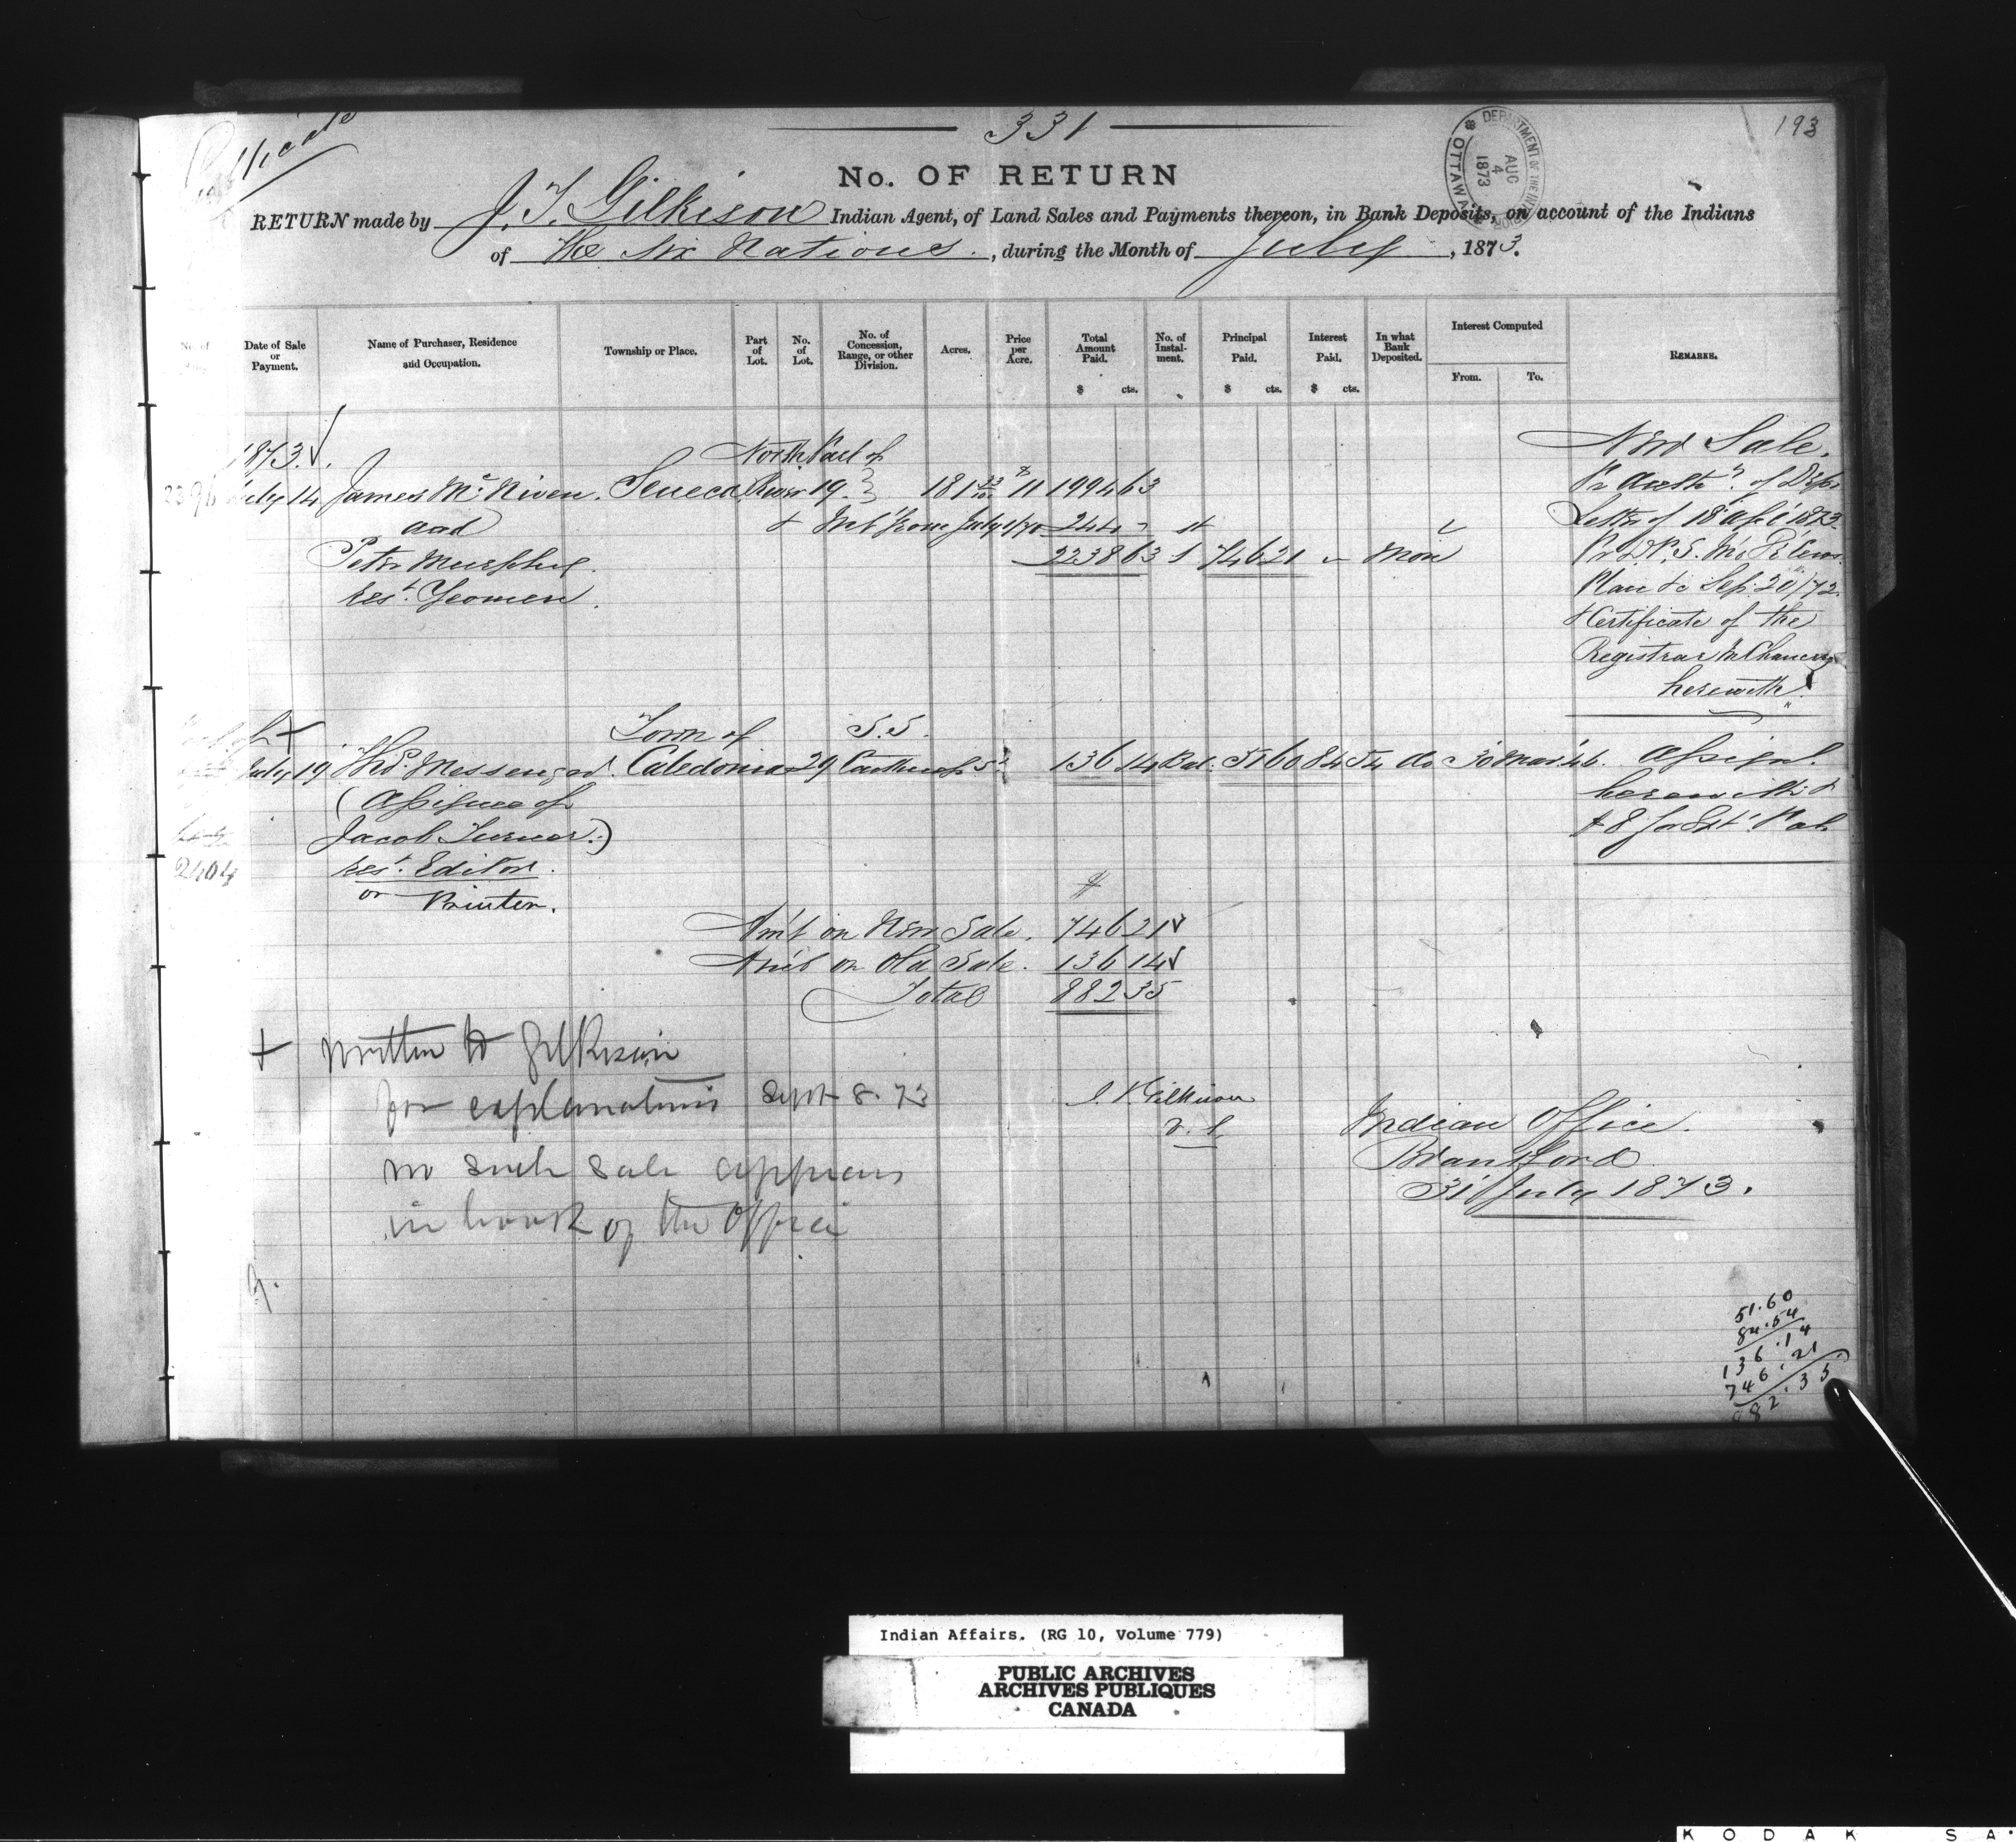 331
193
DEPARTMENT OF THE INTERIOR
AUG
4
1873
OTTAWA
No. OF RETURN
RETURN made by J. T. Gilkison Indian Agent, of Land Sales and Payments thereon, in Bank Deposits, on account of the Indians
of the Six Nations, during the Month of July, 1873.
No. of
Date of Sale or Payment.
Name of Purchaser, Residence and Occupation.
Township or Place.
Part of Lot.
No. of Lot.
No. of Concession, Range, or other Division.
Acres.
Price per Acre.
Total Amount Paid. $ cts.
No. of Instalment.
Principal Paid. $ cts.
Interest Paid. $ cts.
In what Bank Deposited.
Interest Computed
From.
To.
REMARKS.
1873.
North Part of
New Sale.
July 14 James McNiven. Seneca River 19. 181 11 1994 63
of Dept
and
+ Int from July 1/70 244 "
Letter of 18 Apl 1873
Peter Murphy.
2238 63 1 746 21 Mon
rest. Yeomen.
Plan &c Sep. 20/72.
+ Certificate of the
Registrar in Chancery
herewith.
Town of
S.S.
July 19 Messenger. Caledonia 29 136 14 Bal. 51 60 84 54 do 30 Mar '46. Assignt.
(Assignee of
herewith &
Jacob Turner.)
rest. Editor.
2404
or Printer.
Am't on New Sale. 746 21
Am't on Old Sale. 136 14
Total 882 35
+ Written to Gilkison
for explanations Sept 8. 73
J. T. Gilkison
V. S.
Indian Office.
no such sale appears
Brantford
31 July 1873.
in book of the Office
51.60
84.54
136.14
746.21
882.35
Indian Affairs. (RG 10, Volume 779)
PUBLIC ARCHIVES
ARCHIVES PUBLIQUES
CANADA
KODAK SA